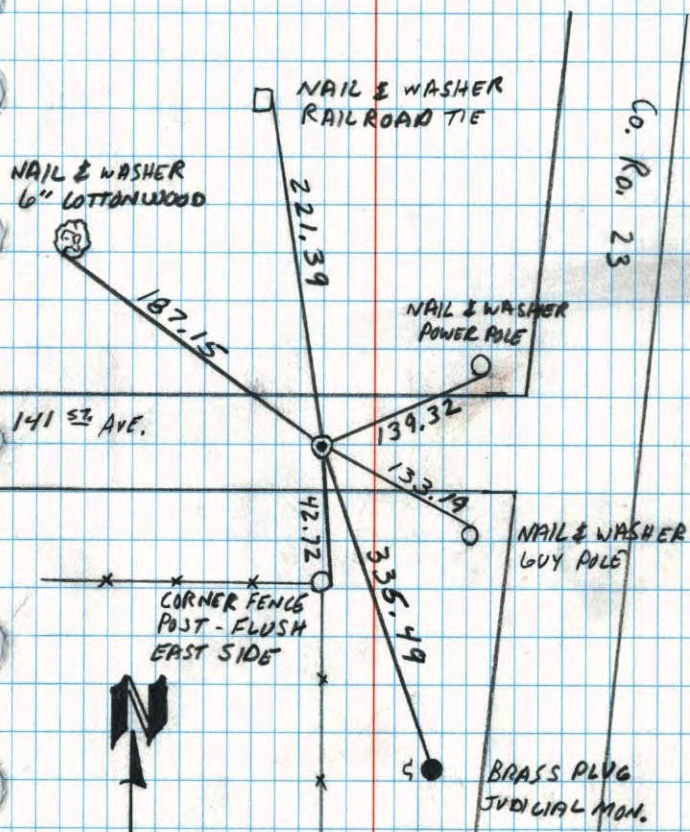 NAIL & WASHER
RAILROAD TIE
Co. Rd. 23
NAIL & WASHER
6" COTTONWOOD
221.39
187.15
NAIL & WASHER
POWER POLE
141 ST. AVE.
139.32
133.19
42.72
335.49
NAIL & WASHER
GUY POLE
CORNER FENCE
POST - FLUSH
EAST SIDE
N
BRASS PLUG
JUDICIAL MON.